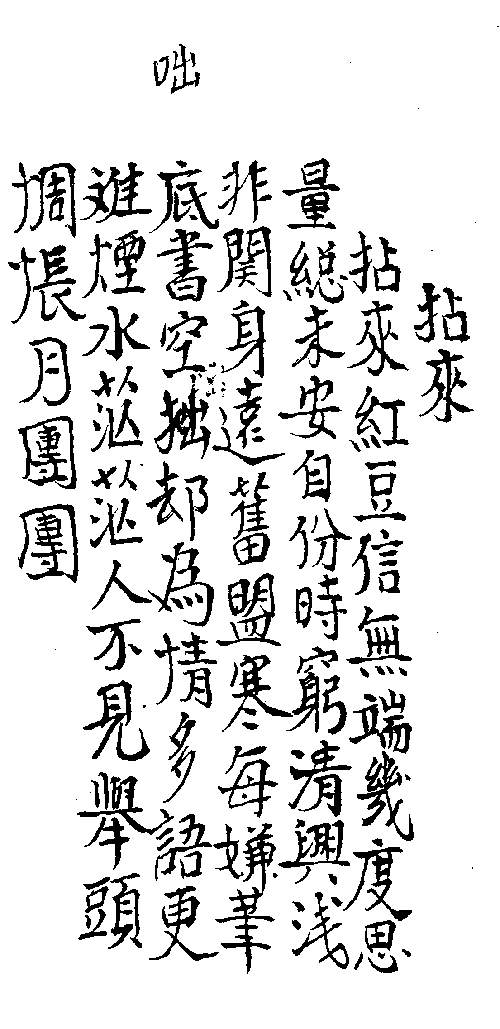 拈來
拈來紅豆信無端幾度思
量緫未安自份時窮清興浅
非関身遠舊盟寒每嫌筆
咄
底書空拙却為情多語更
难煙水茫茫人不見舉頭
惆悵月團團